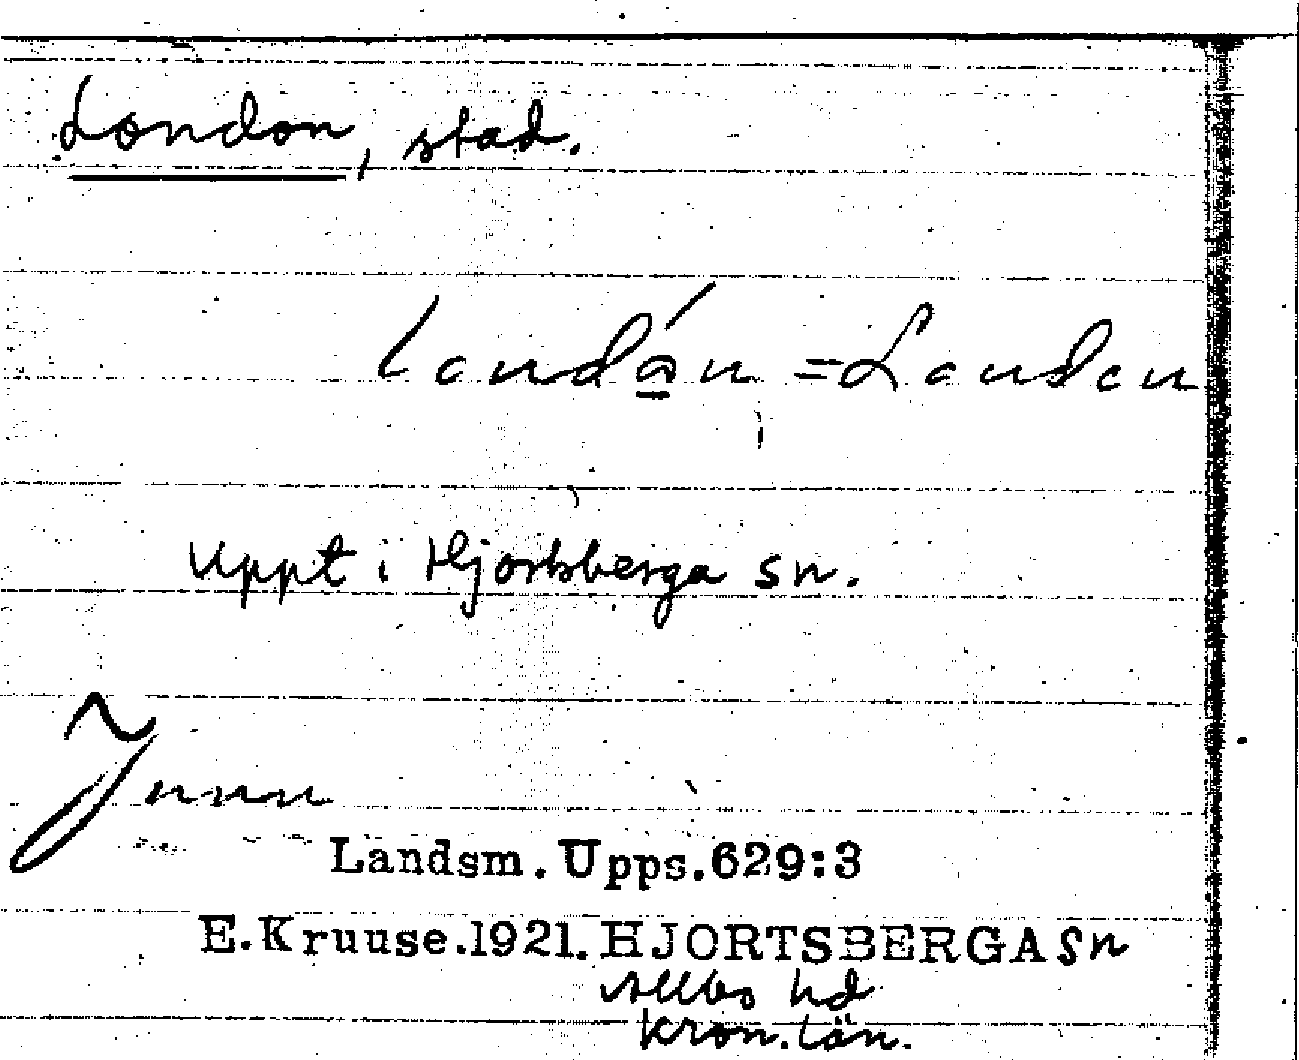 London, stad.
londán = London
Uppt i Hjortsberga sn.
Landsm. Upps. 629:3
E. Kruuse. 1921. HJORTSBERGA sn
Allbo hd
Kron. län.